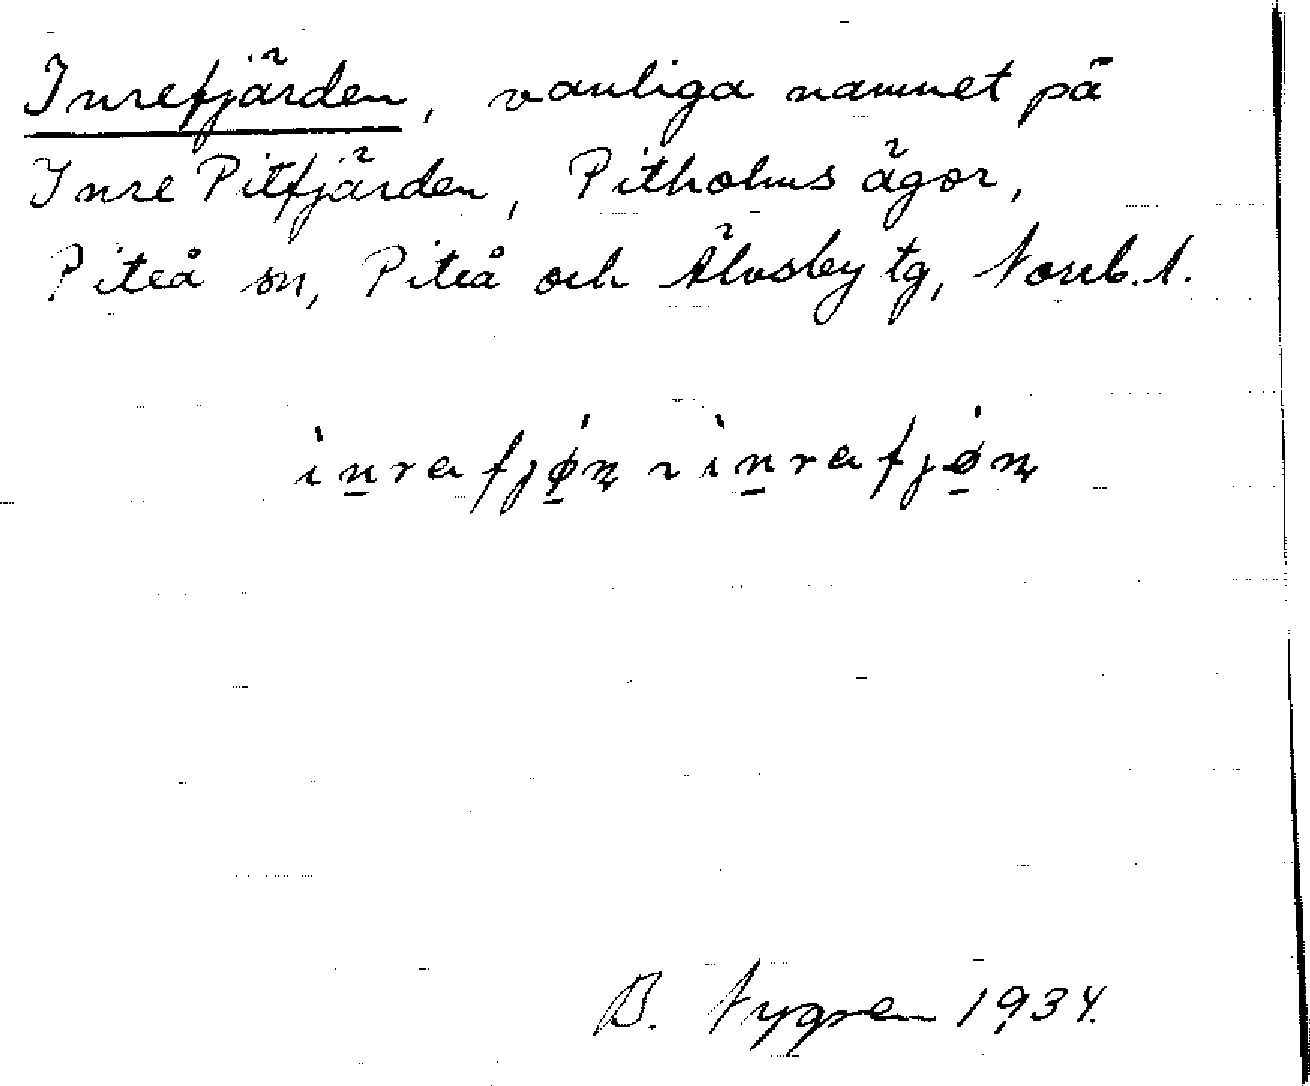 Inrefjärden, vanliga namnet på
Inre Pitfjärden, Pitholms ägor,
Piteå sn, Piteå och Älvsby tg, Norrb. l.
ìnrafjǿṇ ~ ìnrafjǿṇ
B. Nygren 1934.